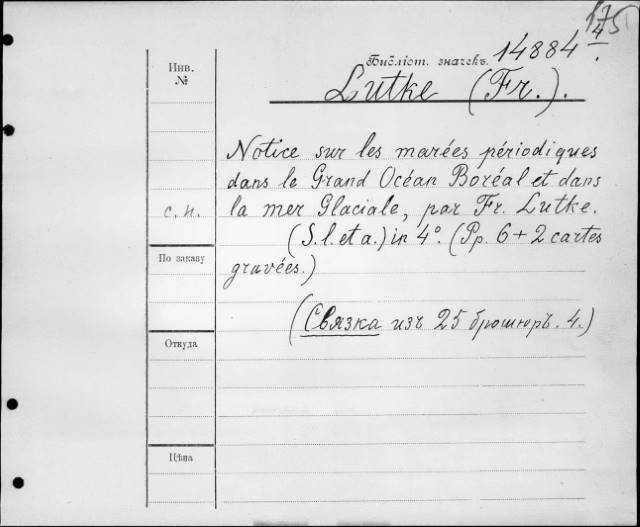 Инв.
№
Библіот. значекъ. 14884
Lutke (Fr.).
Notice sur les marées périodiques
dans le Grand Océan Boréal et dans
la mer Glaciale, par Fr. Lutke.
с. н.
(S. l. et a.) in 4°. (Pp. 6 + 2 cartes
По заказу
gravées.)
(Связка изъ 25 брошюръ. 4.)
Откуда
Цѣна